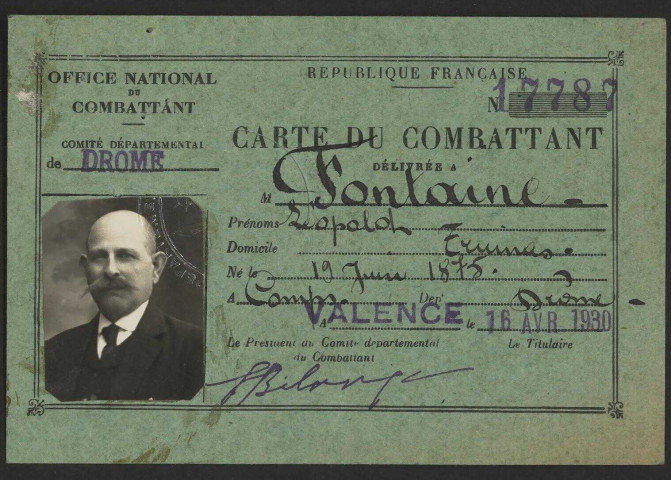 OFFICE NATIONAL
DU
COMBATTANT
COMITÉ DÉPARTEMENTAL
de DROME
REPUBLIQUE FRANÇAISE
N 17787
CARTE DU COMBATTANT
DÉLIVRÉE A
M Fontaine
Prénoms Léopold
Domicile Truinas
Né le 19 Juin 1875
A Comps Dep' Drôme
A VALENCE le 16 AVR 1930
Le President du Comite departemental
du Combattant
Le Titulaire